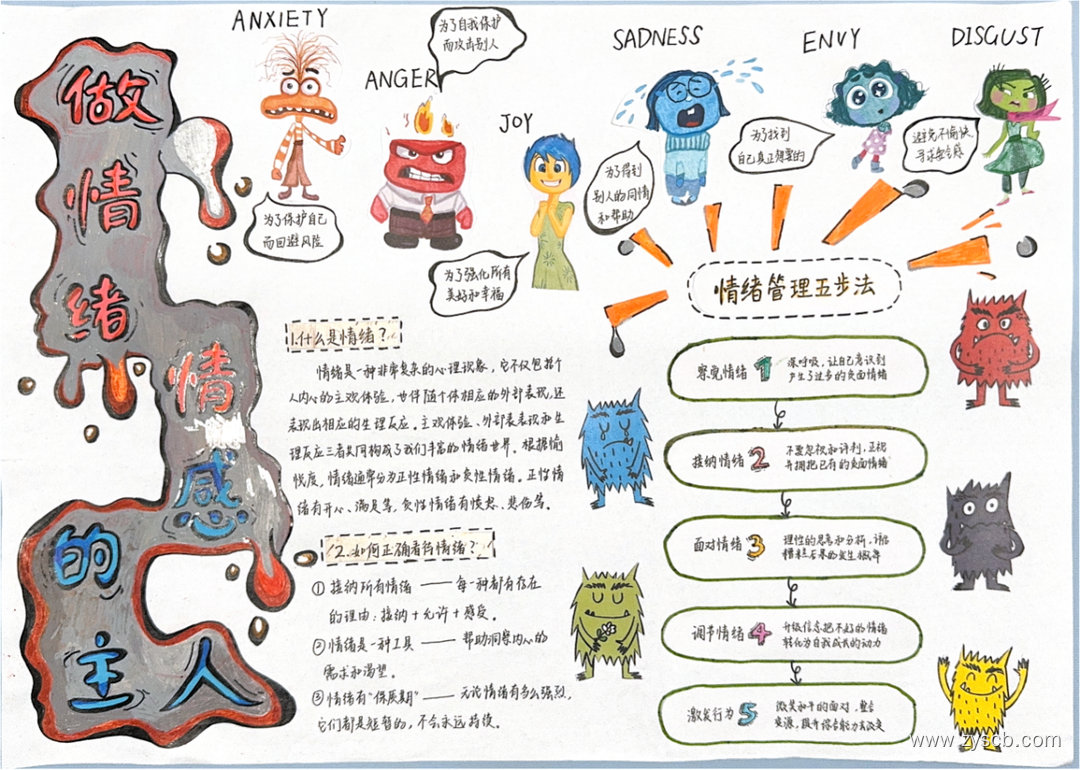 做情绪情感的主人
ANXIETY
为了保护自己
而回避风险
ANGER
为了自我保护
而攻击别人
JOY
为了强化所有
美好和幸福
SADNESS
为了得到
别人的同情
和帮助
ENVY
为了找到
自己真正想要的
DISGUST
避免不愉快
寻求安全感
1.什么是情绪？
情绪是一种非常复杂的心理现象，它不仅包括个
人内心的主观体验，也伴随个体相应的外部表现，还
表现出相应的生理反应。主观体验、外部表表现和生
理反应三者共同构成了我们丰富的情绪世界。根据愉
悦度，情绪通常分为正性情绪和负性情绪。正性情
绪有开心、满足等，负性情绪有愤怒、悲伤等。
2.如何正确看待情绪？
① 接纳所有情绪 —— 每一种都有存在
的理由：接纳+允许+感受。
② 情绪是一种工具 —— 帮助洞察内心的
需求和渴望。
③ 情绪有“保质期” —— 无论情绪有多么强烈，
它们都是短暂的，不会永远持续。
情绪管理五步法
察觉情绪 1 深呼吸，让自己意识到
产生了过多的负面情绪
接纳情绪 2 不要忽视和评判，正视
并拥抱已有的负面情绪
面对情绪 3 理性的思考和分析，评估
糟糕后果的发生概率
调节情绪 4 升级信念把不好的情绪
转化为自我成长的动力
激发行为 5 微笑和平的面对，整合
资源，提升综合能力去改变
www.zyscb.com